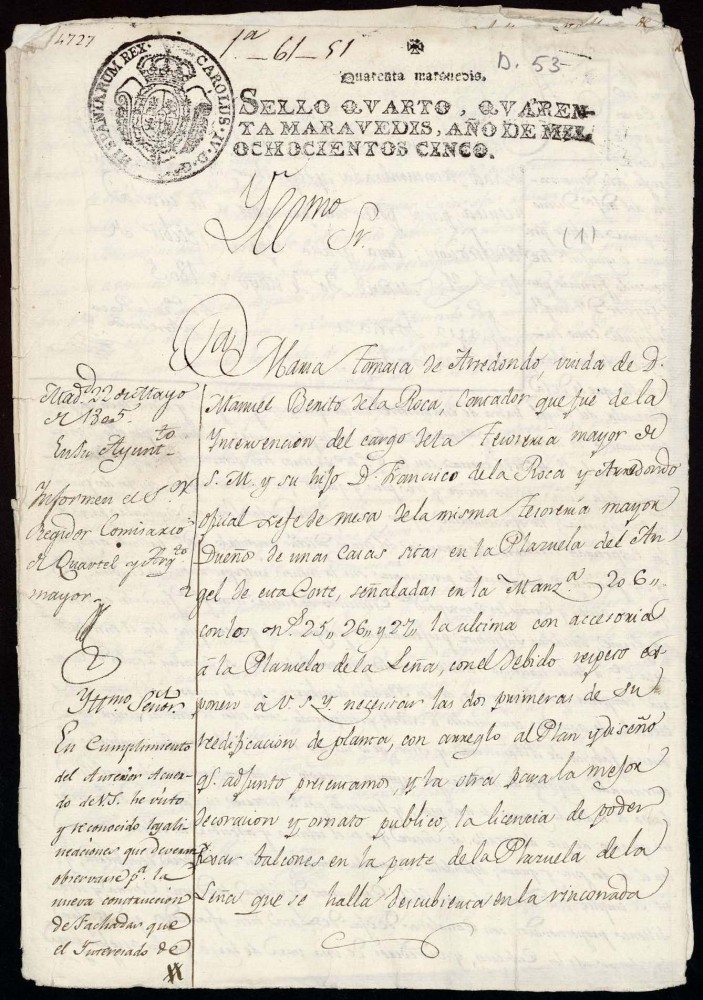 4727
1ª-61-51
D. 53-
HISPANIARUM REX. CAROLUS. IV. D. G.
Quarenta maravedis.
SELLO QVARTO, QVAREN-
TA MARAVEDIS, AÑO DE MIL
OCHOCIENTOS CINCO.
Yllmo
Sr.
(1)
Dª Maria Tomasa de Arredondo, viuda de D.
Manuel Benito de la Roca, Contador que fué de la
Intervencion del cargo de la Tesorería mayor de
S. M. y su hijo D. Francisco de la Roca y Arredondo
oficial Xefe de mesa de la misma Tesorería mayor
Dueño de unas casas sitas en la Plazuela del An-
gel de esta Corte, señaladas en la Manzª. 206,,
con los nos. 25,, 26,, y 27,, la ultima con accesoria
à la Plazuela de la Leña, con el debido respeto ex
ponen à V. S. Y. necesitar las dos primeras de su
reedificacion de planta, con arreglo al Plan y diseño
qe. adjunto presentamos, y la otra para la mejor
decoracion y ornato publico, la licencia de poder
fixar balcones en la parte de la Plazuela de la
Leña que se halla descubierta en la rinconada
Madd. 22 de Mayo
de 1805.
En su Ayuntto.
Informen el Sor.
Regidor Comisario
de Quartel y Arqto
mayor
Yttmo. Señor.
En Cumplimiento
del Anterior Acuer-
do de V.S. he visto
y reconocido las ali-
neaciones que deveran
observarse pª. la
nueva construccion
de Fachadas que
el Interesado de